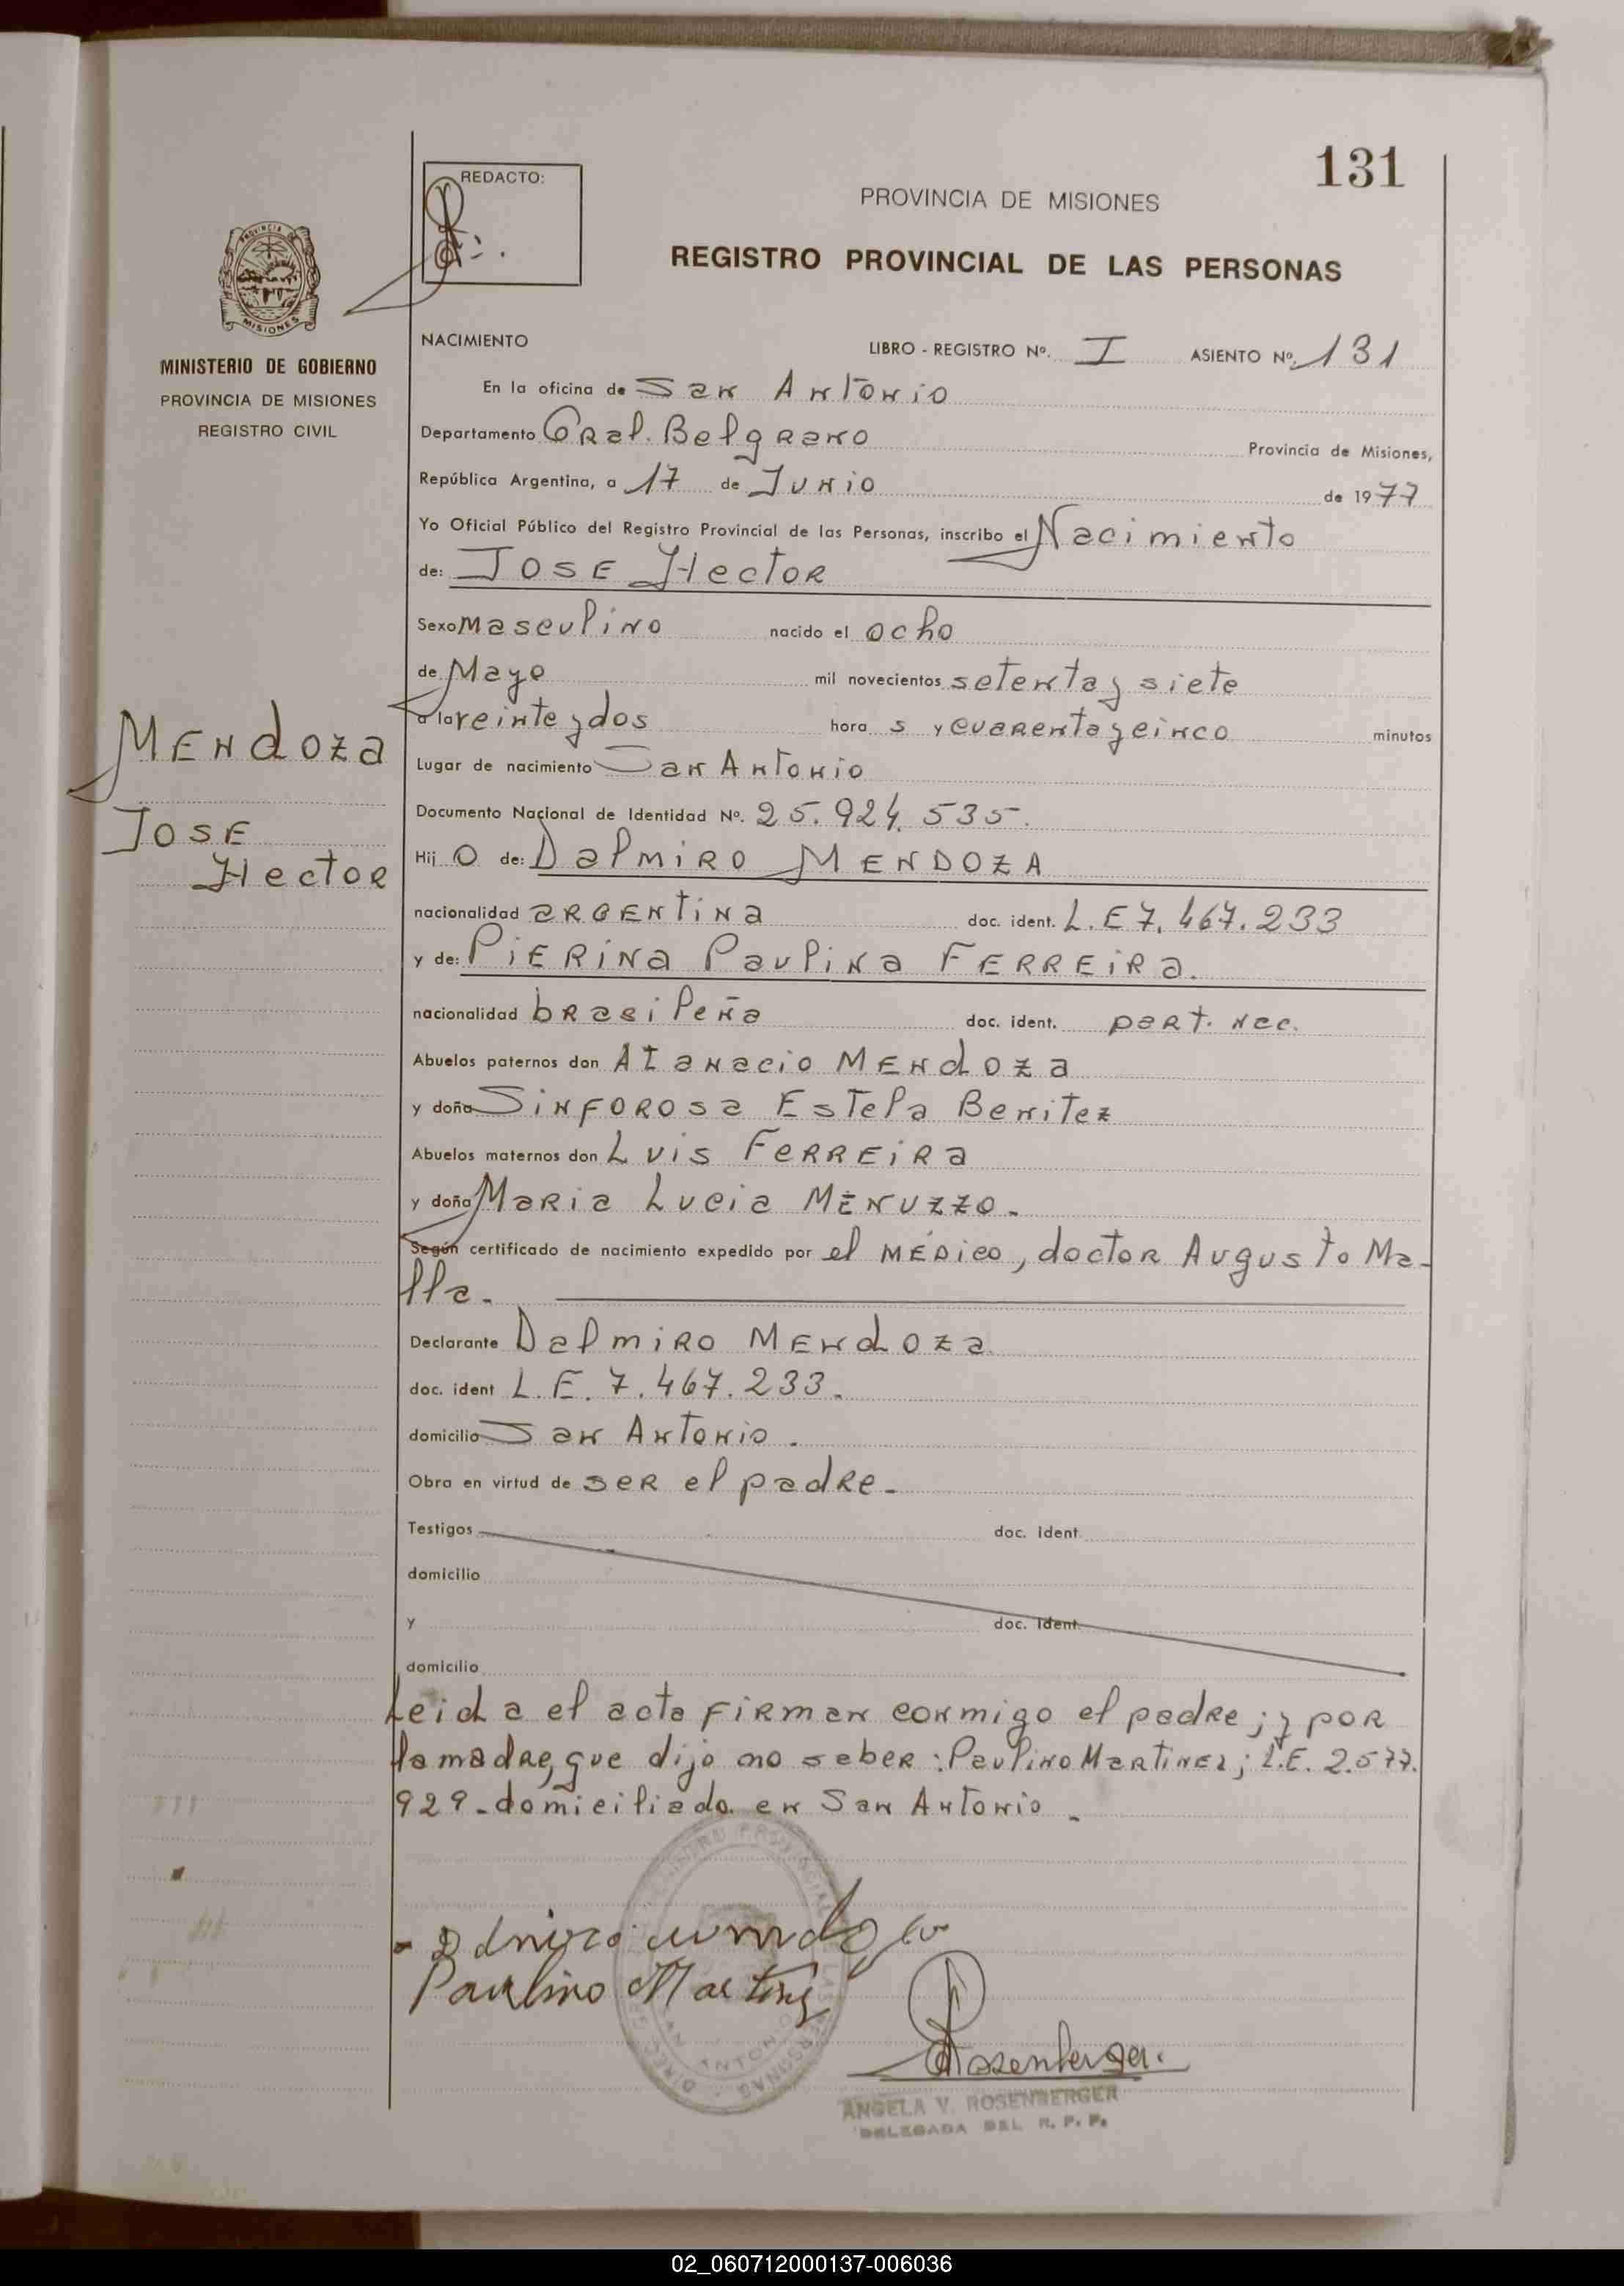 131
REDACTO:
PROVINCIA DE MISIONES
REGISTRO PROVINCIAL DE LAS PERSONAS
PROVINCIA DE
MISIONES
MINISTERIO DE GOBIERNO
PROVINCIA DE MISIONES
REGISTRO CIVIL
NACIMIENTO LIBRO - REGISTRO Nº. I ASIENTO Nº. 131
En la oficina de San Antonio
Departamento Gral. Belgrano Provincia de Misiones,
República Argentina, a 17 de Junio de 1977
Yo Oficial Público del Registro Provincial de las Personas, inscribo el Nacimiento
de: JOSE Hector
Sexo Masculino nacido el ocho
de Mayo mil novecientos setenta y siete
a las veinte y dos hora s y cuarenta y cinco minutos
Mendoza
Jose
Hector
Lugar de nacimiento San Antonio
Documento Nacional de Identidad Nº. 25.924.535.
Hij o de: Dalmiro MENDOZA
nacionalidad argentina doc. ident. L.E 7.467.233
y de: Pierina Paulina FERREIRA.
nacionalidad brasileña doc. ident. part. nac.
Abuelos paternos don Atanacio Mendoza
y doña Sinforosa Estela Benitez
Abuelos maternos don Luis Ferreira
y doña Maria Lucia Menuzzo.
Según certificado de nacimiento expedido por el MÉDico, doctor Augusto Ma-
lla.
Declarante Dalmiro Mendoza
doc. ident L.E. 7.467.233.
domicilio San Antonio.
Obra en virtud de ser el padre.
Testigos doc. ident.
domicilio
y doc. ident.
domicilio
Leid a el acta firman conmigo el padre; y por
la madre, que dijo no saber: Paulino Martinez; L.E. 2.577.
929 - domiciliado en San Antonio.
Paulino Martinez
Rosenberger.
ANGELA V. ROSENBERGER
DELEGADA DEL R. P. P.
02_060712000137-006036